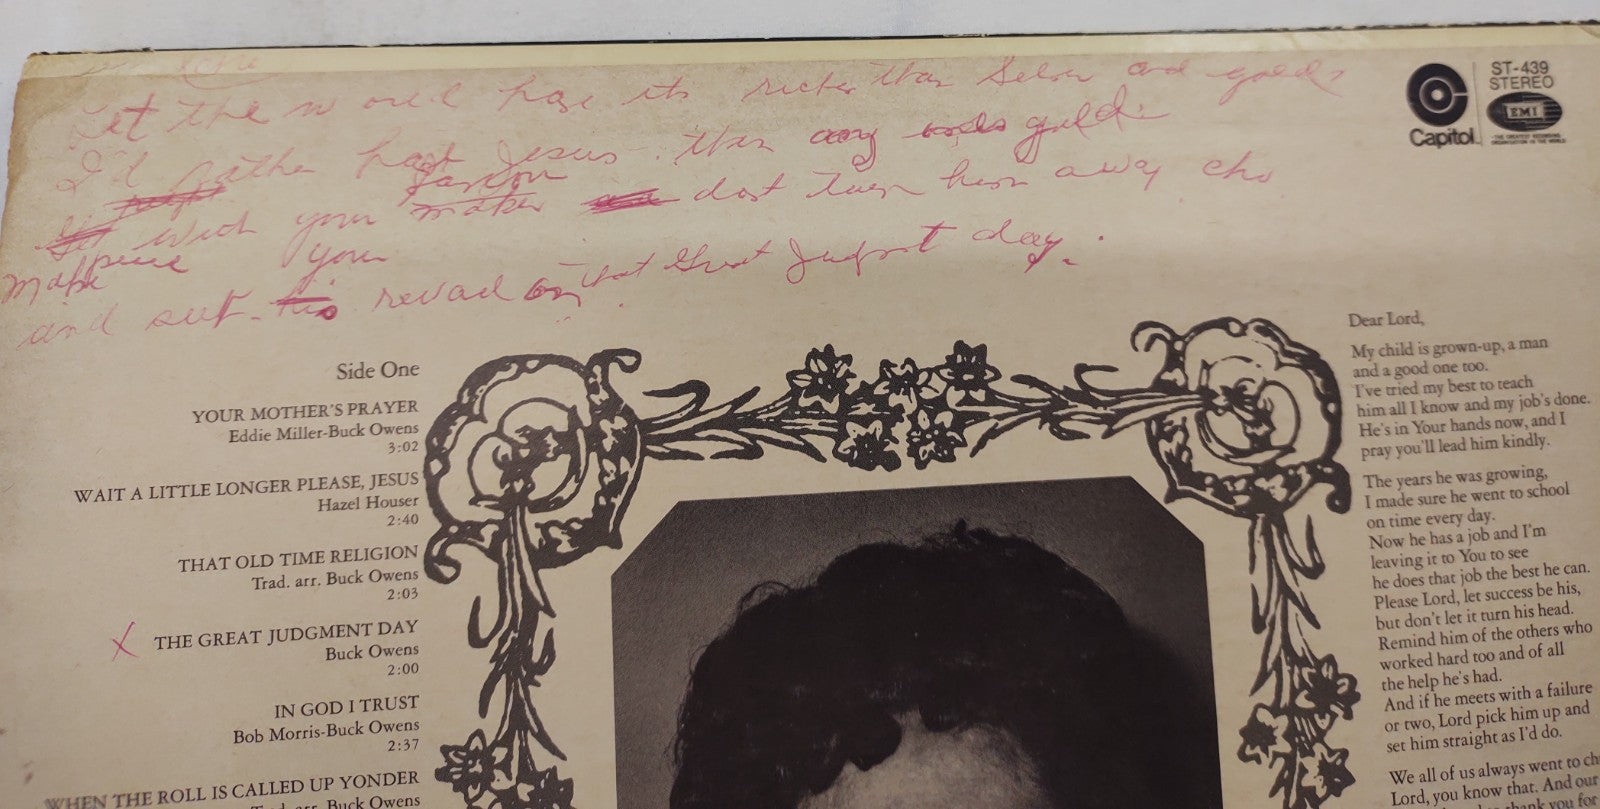 Let the would have its riches than Selver and golds
I'd rather have Jesus. then any gold.
Savior
with your maker dost turn him away
make peace your
and suf revard on that Great Judgmt day.
Capitol
ST-439
STEREO
EMI
THE GREATEST RECORDING
ORGANISATION IN THE WORLD
Side One
YOUR MOTHER'S PRAYER
Eddie Miller-Buck Owens
3:02
WAIT A LITTLE LONGER PLEASE, JESUS
Hazel Houser
2:40
THAT OLD TIME RELIGION
Trad. arr. Buck Owens
2:03
X THE GREAT JUDGMENT DAY
Buck Owens
2:00
IN GOD I TRUST
Bob Morris-Buck Owens
2:37
WHEN THE ROLL IS CALLED UP YONDER
Trad. arr. Buck Owens
Dear Lord,
My child is grown-up, a man
and a good one too.
I've tried my best to teach
him all I know and my job's done.
He's in Your hands now, and I
pray you'll lead him kindly.
The years he was growing,
I made sure he went to school
on time every day.
Now he has a job and I'm
leaving it to You to see
he does that job the best he can.
Please Lord, let success be his,
but don't let it turn his head.
Remind him of the others who
worked hard too and of all
the help he's had.
And if he meets with a failure
or two, Lord pick him up and
set him straight as I'd do.
We all of us always went to
Lord, you know that. And our
thank you for